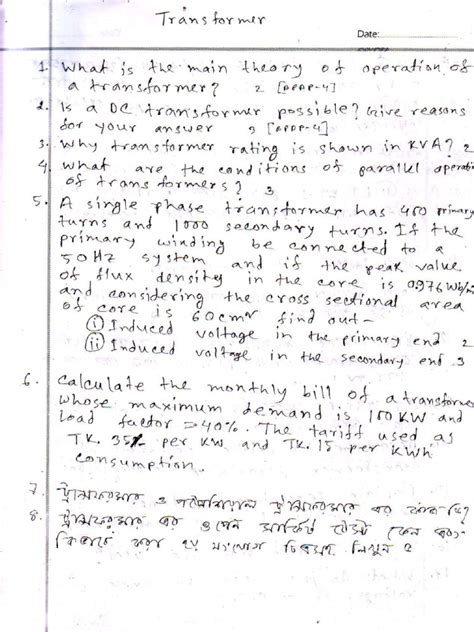 Transformer
Date:
1. What is the main theory of operation of
a transformer? 2
2. Is a DC transformer possible? Give reasons
for your answer 3
3. Why transformer rating is shown in KVA? 2
4. What are the conditions of parallel operati
of transformers? 3
5. A single phase transformer has 400 primary
turns and 1000 secondary turns. If the
primary winding be connected to a
50 HZ system and if the peak value
of flux density in the core is
and considering the cross sectional area
of core is 60 find out-
(i) Induced voltage in the primary end 2
(ii) Induced voltage in the secondary end 3
6. Calculate the monthly bill of a transformer
whose maximum demand is 100 KW and
load factor = 40%. The tariff used as
TK. per KW and TK. 15 per KWh
consumption.
7. ট্রান্সফরমার ও ট্রান্সফরমার
8. ট্রান্সফরমার ও ওপেন সার্কিট টেস্ট কেন
কিভাবে করা হয়